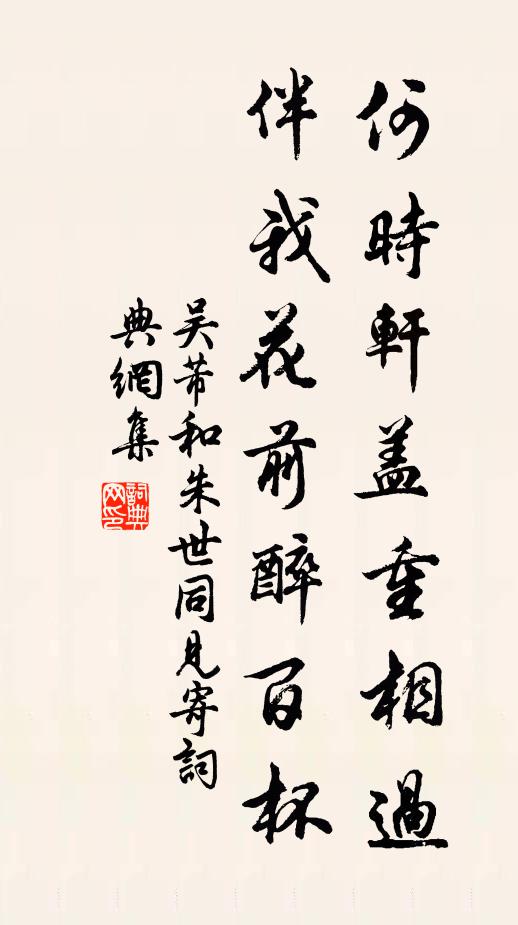 何時軒盖重相過
伴我花前醉百杯
吴芾和朱世同見寄詞
典網集
詞典网印